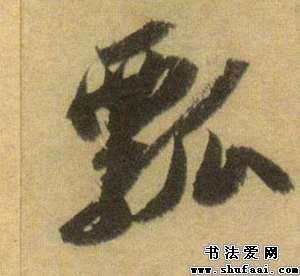 瓢
书法爱网
www.shufaai.com